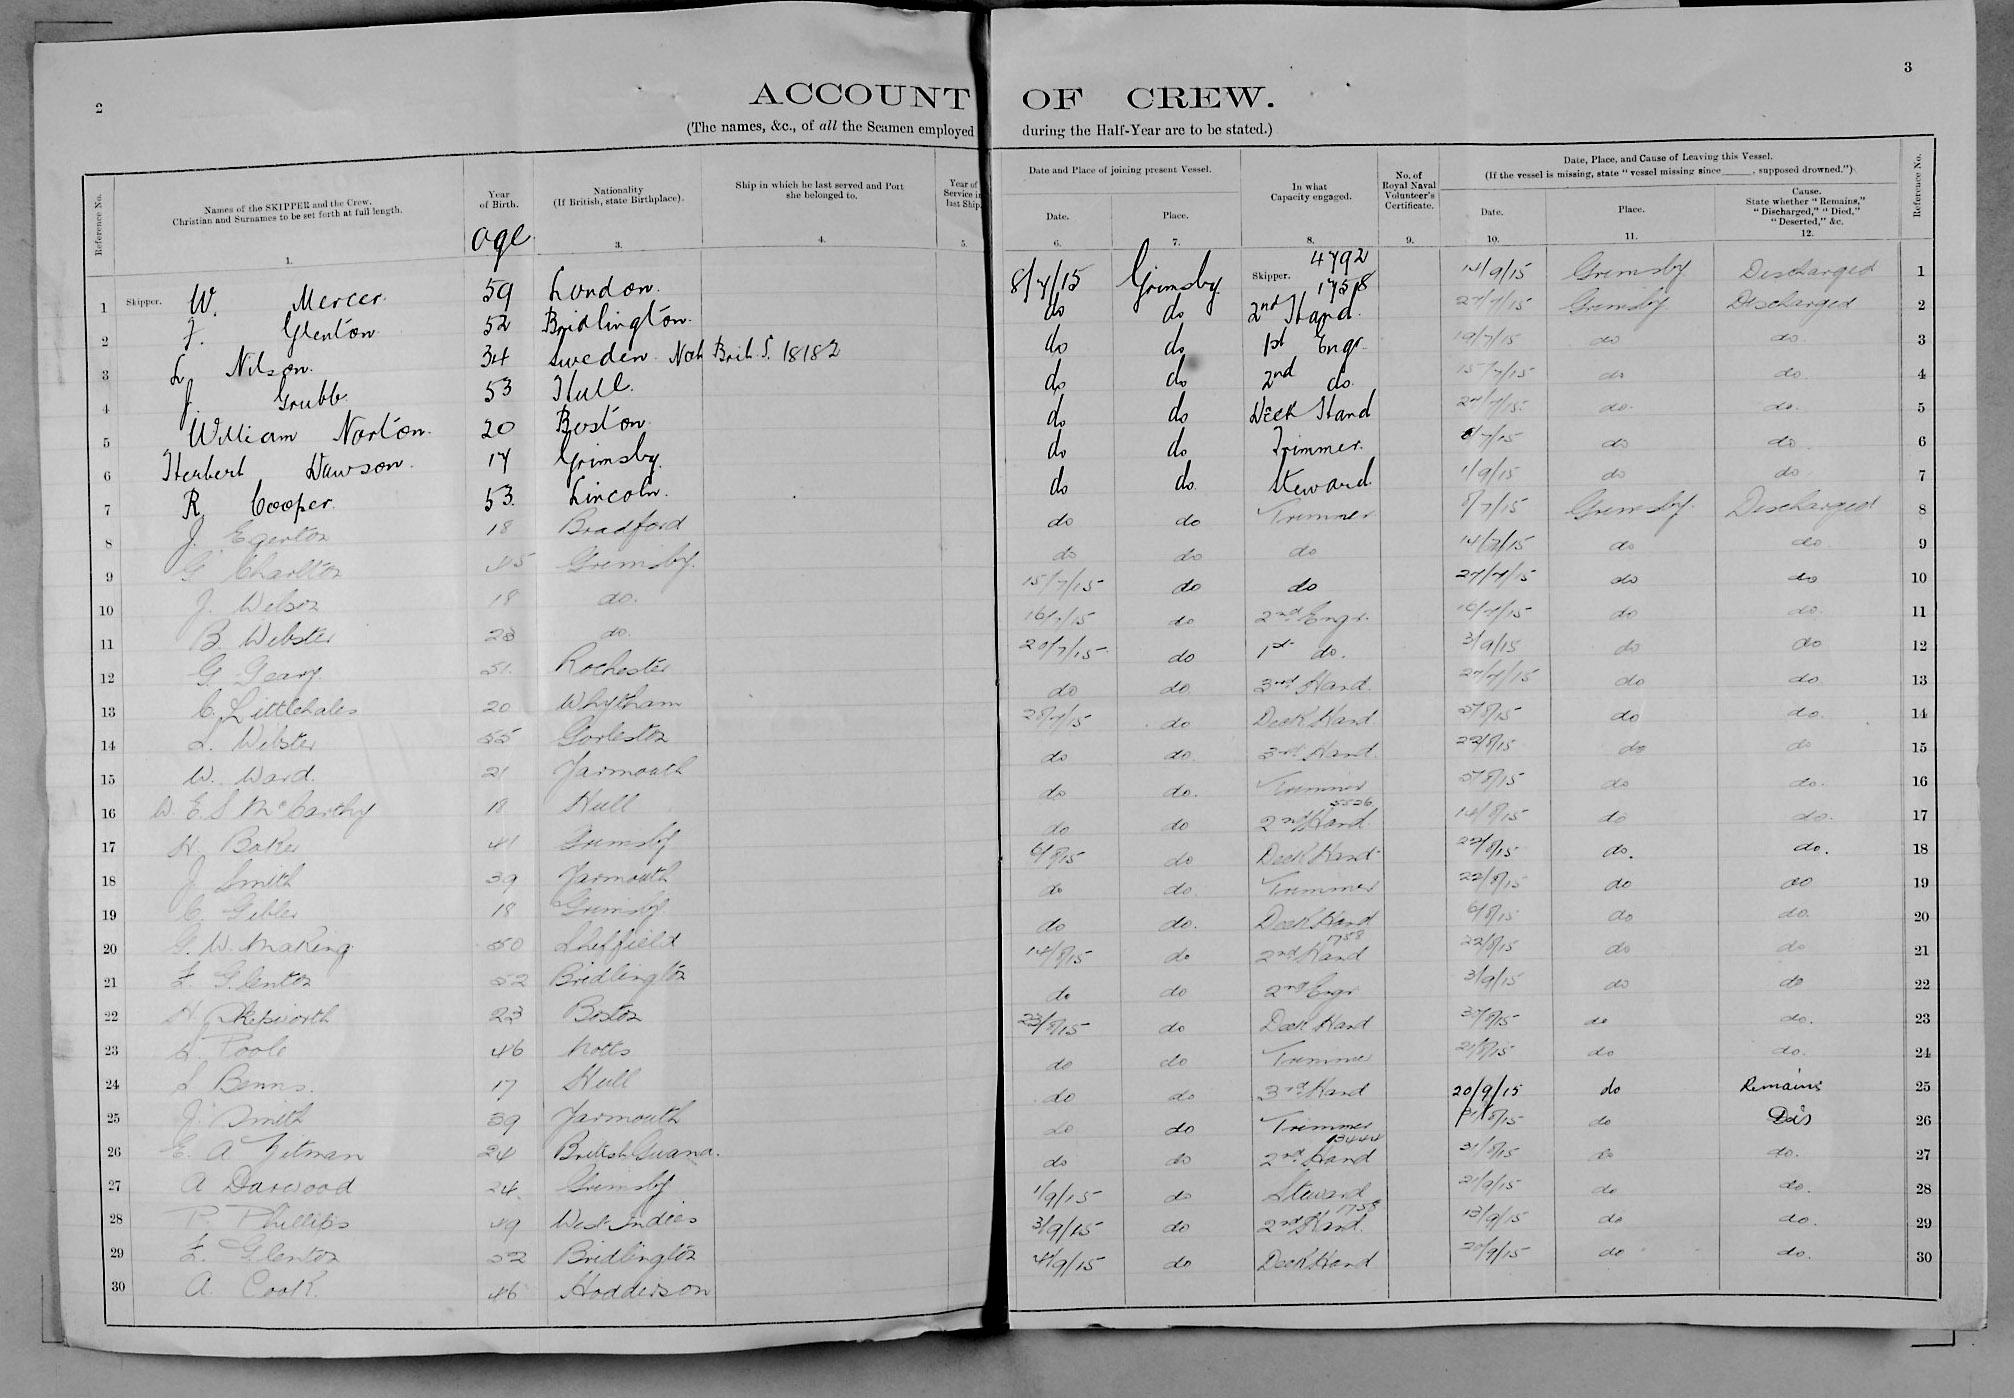 2
3
ACCOUNT OF CREW.
(The names, &c., of all the Seamen employed during the Half-Year are to be stated.)
Reference No. Names of the SKIPPER and the Crew. Christian and Surnames to be set forth at full length. 1. Year of Birth. age Nationality (If British, state Birthplace). 3. Ship in which he last served and Port she belonged to. 4. Year of Service in last Ship. 5. Date and Place of joining present Vessel. Date. 6. Place. 7. In what Capacity engaged. 8. No. of Royal Naval Volunteer's Certificate. 9. Date, Place, and Cause of Leaving this Vessel. (If the vessel is missing, state "vessel missing since____, supposed drowned.") Date. 10. Place. 11. Cause. State whether "Remains," "Discharged," "Died," "Deserted," &c. 12. Reference No.
1 Skipper. W. Mercer. 59 London. 8/7/15 Grimsby Skipper. 4792 14/9/15 Grimsby Discharged 1
2 F. Glenton 52 Bridlington. do do 2nd Hand. 1758 27/7/15 Grimsby Discharged 2
3 L Nilson. 34 Sweden Brit. S. 18182 do do 1st Engr. 19/7/15 do do. 3
4 J. Grubb. 53 Hull. do do 2nd do. 15/7/15 do do. 4
5 William Norton. 20 Boston. do do Deck Hand 27/7/15 do. do. 5
6 Herbert Dawson. 17 Grimsby. do do Trimmer. /7/15 do do. 6
7 R. Cooper. 53. Lincoln. do do. Steward. 1/9/15 do do 7
8 J. Egerton 18 Bradford do do Trimmer 8/7/15 Grimsby. Discharged 8
9 G Charlton 45 Grimsby. do do do 14/7/15 do do. 9
10 J. Wilson 18 do. 15/7/15 do do 27/7/15 do do 10
11 B. Webster 23 do. 16/7/15 do 2nd Engr. 16/7/15 do do. 11
12 G. Geary 51. Rochester 20/7/15 do 1st do. 3/9/15 do do 12
13 C. Littlehales 20 Whytham do do 3rd Hand. 27/7/15 do do 13
14 L. Webster 55 Gorleston 28/7/15 do Deck Hand. 5/8/15 do do. 14
15 W. Ward. 21 Yarmouth do do. 3rd Hand. 22/8/15 do do 15
16 W. E. S McCarthy 18 Hull do do. Trimmer 5/8/15 do do. 16
17 H. Baker 41 Grimsby do do 2nd Hand. 5526 14/8/15 do do. 17
18 J Smith 39 Yarmouth 6/8/15 do Deck Hand 22/8/15 do. do. 18
19 C. Gibler 18 Grimsby do do. Trimmer 22/8/15 do do 19
20 G. W. Making 50 Sheffield do do. Deck Hand 6/8/15 do do. 20
21 F. Glenton 52 Bridlington 14/8/15 do 2nd Hand 1758 22/8/15 do do 21
22 H. Skepworth 23 Boston do do 2nd Engr 3/9/15 do do 22
23 Poole 46 Notts 23/8/15 do Deck Hand 30/8/15 do do. 23
24 L Benns. 17 Hull do do Trimmer 21/8/15 do do. 24
25 J. Smith 39 Yarmouth do do 3rd Hand 20/9/15 do Remains 25
26 E. A Yetman 24 British Guana. do do Trimmer 31/8/15 do Dis 26
27 A Darwood 24. Grimsby do do 2nd Hand 13444 31/8/15 do do. 27
28 P. Phillips 49 West Indies 1/9/15 do Steward 21/9/15 do do. 28
29 F. Glenton 52 Bridlington 3/9/15 do 2nd Hand. 1758 13/9/15 do do. 29
30 A. Cook. 46 Hodderson 4/9/15 do Deck Hand 20/9/15 do do. 30